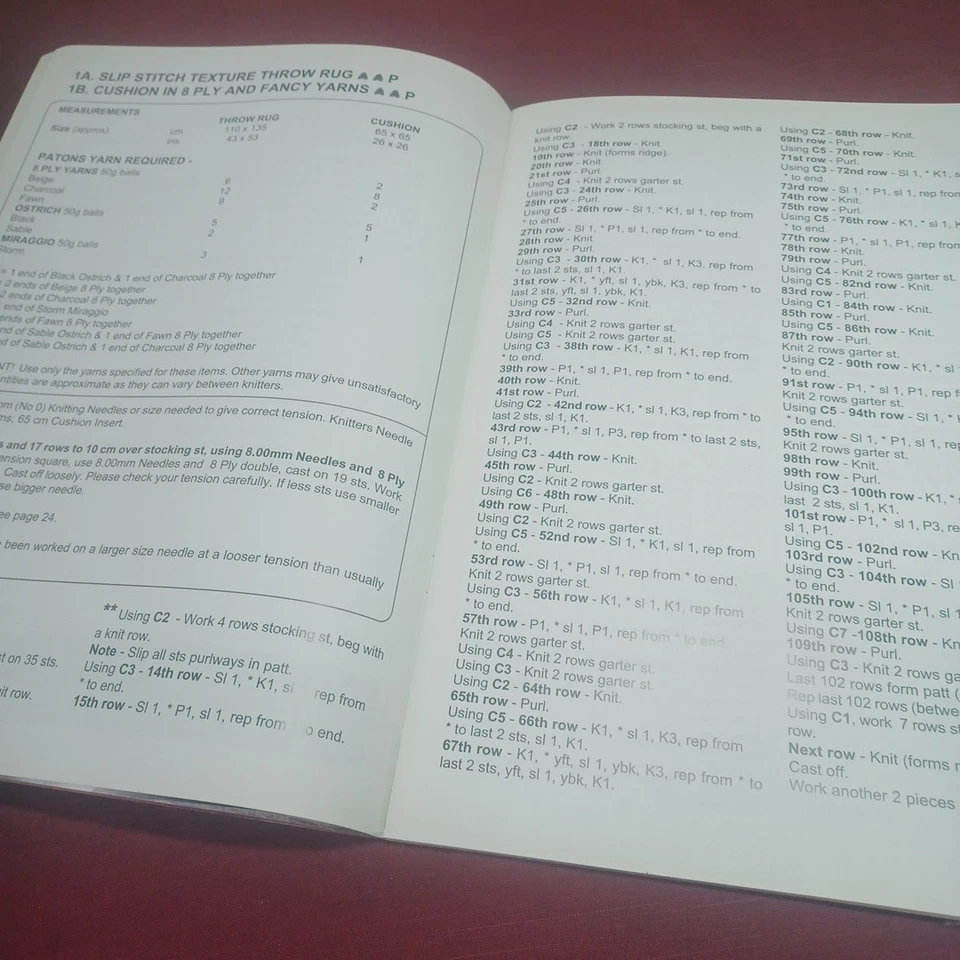 1A. SLIP STITCH TEXTURE THROW RUG P
1B. CUSHION IN 8 PLY AND FANCY YARNS P
MEASUREMENTS
THROW RUG CUSHION
Size (approx) cm 110 x 135 65 x 65
ins 43 x 53 26 x 26
PATONS YARN REQUIRED -
8 PLY YARNS 50g balls
Beige 6 2
Charcoal 12 8
Fawn 9 2
OSTRICH 50g balls
Black 5 5
Sable 2 1
MIRAGGIO 50g balls
Storm 3 1
= 1 end of Black Ostrich & 1 end of Charcoal 8 Ply together
2 ends of Beige 8 Ply together
2 ends of Charcoal 8 Ply together
end of Storm Miraggio
ends of Fawn 8 Ply together
end of Sable Ostrich & 1 end of Fawn 8 Ply together
of Sable Ostrich & 1 end of Charcoal 8 Ply together
Use only the yarns specified for these items. Other yarns may give unsatisfactory
are approximate as they can vary between knitters.
(No 0) Knitting Needles or size needed to give correct tension. Knitters Needle
65 cm Cushion Insert.
and 17 rows to 10 cm over stocking st, using 8.00mm Needles and 8 Ply
square, use 8.00mm Needles and 8 Ply double, cast on 19 sts. Work
Cast off loosely. Please check your tension carefully. If less sts use smaller
bigger needle.
page 24.
been worked on a larger size needle at a looser tension than usually
on 35 sts.
row.
** Using C2 - Work 4 rows stocking st, beg with
a knit row.
Note - Slip all sts purlways in patt.
Using C3 - 14th row - Sl 1, * K1, sl rep from
* to end.
15th row - Sl 1, * P1, sl 1, rep from * to end.
Using C2 - Work 2 rows stocking st, beg with a
knit row.
Using C3 - 18th row - Knit.
19th row - Knit (forms ridge).
20th row - Knit.
21st row - Purl.
Using C4 - Knit 2 rows garter st.
Using C3 - 24th row - Knit.
25th row - Purl.
Using C5 - 26th row - Sl 1, * K1, sl 1, rep from
* to end.
27th row - Sl 1, * P1, sl 1, rep from * to end.
28th row - Knit.
29th row - Purl.
Using C3 - 30th row - K1, * sl 1, K3, rep from
* to last 2 sts, sl 1, K1.
31st row - K1, * yft, sl 1, ybk, K3, rep from * to
last 2 sts, yft, sl 1, ybk, K1.
Using C5 - 32nd row - Knit.
33rd row - Purl.
Using C4 - Knit 2 rows garter st.
Using C5 - Knit 2 rows garter st.
Using C3 - 38th row - K1, * sl 1, K1, rep from
* to end.
39th row - P1, * sl 1, P1, rep from * to end.
40th row - Knit.
41st row - Purl.
Using C2 - 42nd row - K1, * sl 1, K3, rep from * to
last 2 sts, sl 1, K1.
43rd row - P1, * sl 1, P3, rep from * to last 2 sts,
sl 1, P1.
Using C3 - 44th row - Knit.
45th row - Purl.
Using C2 - Knit 2 rows garter st.
Using C6 - 48th row - Knit.
49th row - Purl.
Using C2 - Knit 2 rows garter st.
Using C5 - 52nd row - Sl 1, * K1, sl 1, rep from
* to end.
53rd row - Sl 1, * P1, sl 1, rep from * to end.
Knit 2 rows garter st.
Using C3 - 56th row - K1, * sl 1, K1, rep from
* to end.
57th row - P1, * sl 1, P1, rep from * to end.
Knit 2 rows garter st.
Using C4 - Knit 2 rows garter st.
Using C3 - Knit 2 rows garter st.
Using C2 - 64th row - Knit.
65th row - Purl.
Using C5 - 66th row - K1, * sl 1, K3, rep from
* to last 2 sts, sl 1, K1.
67th row - K1, * yft, sl 1, ybk, K3, rep from * to
last 2 sts, yft, sl 1, ybk, K1.
Using C2 - 68th row - Knit.
69th row - Purl.
Using C5 - 70th row - Knit.
71st row - Purl.
Using C3 - 72nd row - Sl 1, * K1, s
* to end.
73rd row - Sl 1, * P1, sl 1, rep from
74th row - Knit.
75th row - Purl.
Using C5 - 76th row - K1, * sl 1, K
* to end.
77th row - P1, * sl 1, P1, rep from
78th row - Knit.
79th row - Purl.
Using C4 - Knit 2 rows garter st.
Using C5 - 82nd row - Knit.
83rd row - Purl.
Using C1 - 84th row - Knit.
85th row - Purl.
Using C5 - 86th row - Knit.
87th row - Purl.
Knit 2 rows garter st.
Using C2 - 90th row - K1, * sl
* to end.
91st row - P1, * sl 1, P1, rep f
Knit 2 rows garter st.
Using C5 - 94th row - Sl 1, *
* to end.
95th row - Sl 1, * P1, sl 1, rep
Knit 2 rows garter st.
98th row - Knit.
99th row - Purl.
Using C3 - 100th row - K1, *
last 2 sts, sl 1, K1.
101st row - P1, * sl 1, P3, re
sl 1, P1.
Using C5 - 102nd row - Kn
103rd row - Purl.
Using C3 - 104th row - Sl
* to end.
105th row - Sl 1, * P1, sl 1
Knit 2 rows garter st.
Using C7 -108th row - Kn
109th row - Purl.
Using C3 - Knit 2 rows ga
Last 102 rows form patt (
Rep last 102 rows (betwe
Using C1, work 7 rows st
row.
Next row - Knit (forms r
Cast off.
Work another 2 pieces